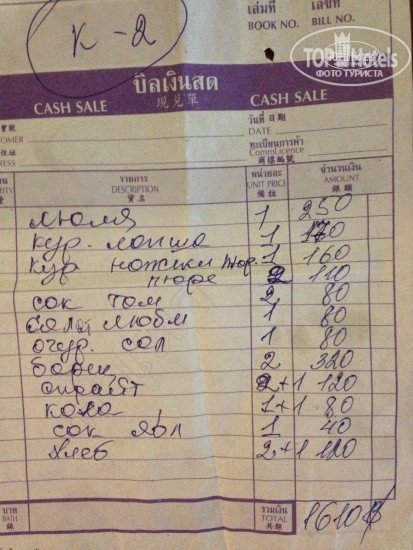 เล่มที่ เลขที่
BOOK NO. BILL NO.
K-2
TOP Hotels
ФОТО ТУРИСТА
บิลเงินสด
CASH SALE 現兌單 CASH SALE
วันที่ 日期
DATE
ทะเบียนการค้า
CommLicence
商標編號
รายการ หน่วยละ จำนวนเงิน
DESCRIPTION UNIT PRICE AMOUNT
貨名 備註 銀額
люля 1 250
кур. лапша 1 170
кур ножки 1 160
пюре 2 110
сок том 2 80
любл 1 80
огур. сол 1 80
борщ 2 320
спрайт 2+1 120
кола 1+1 80
сок ябл 1 40
хлеб 2+1 120
บาท รวมเงิน
BATH TOTAL 1610฿
銖 共銀